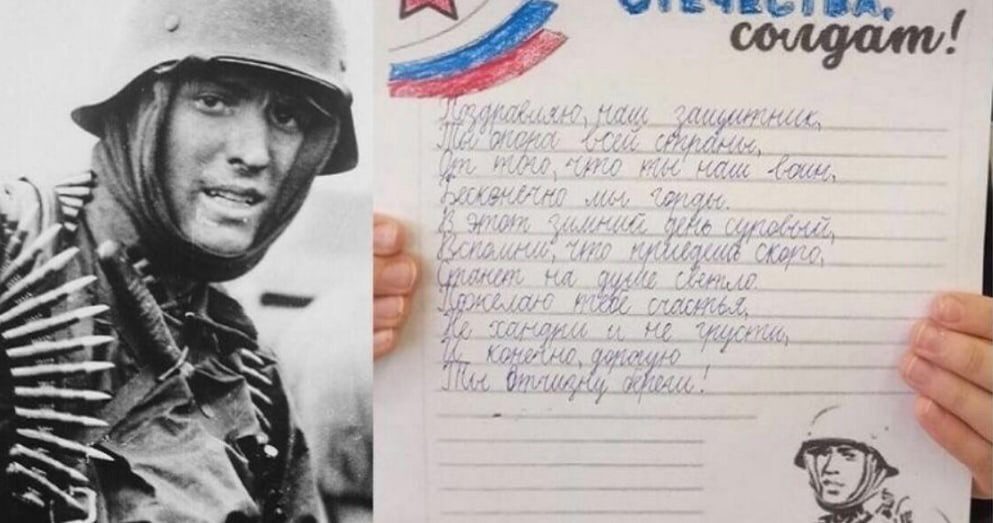 ОТЕЧЕСТВА,
солдат!
Поздравляю, наш защитник,
Ты опора всей страны,
От того, что ты наш воин,
Бесконечно мы горды.
В этот зимний день суровый,
Вспомни, что придешь скоро,
Станет на душе светло.
Пожелаю тебе счастья,
Не хандри и не грусти,
И конечно, дорогую
Ты Отчизну береги!